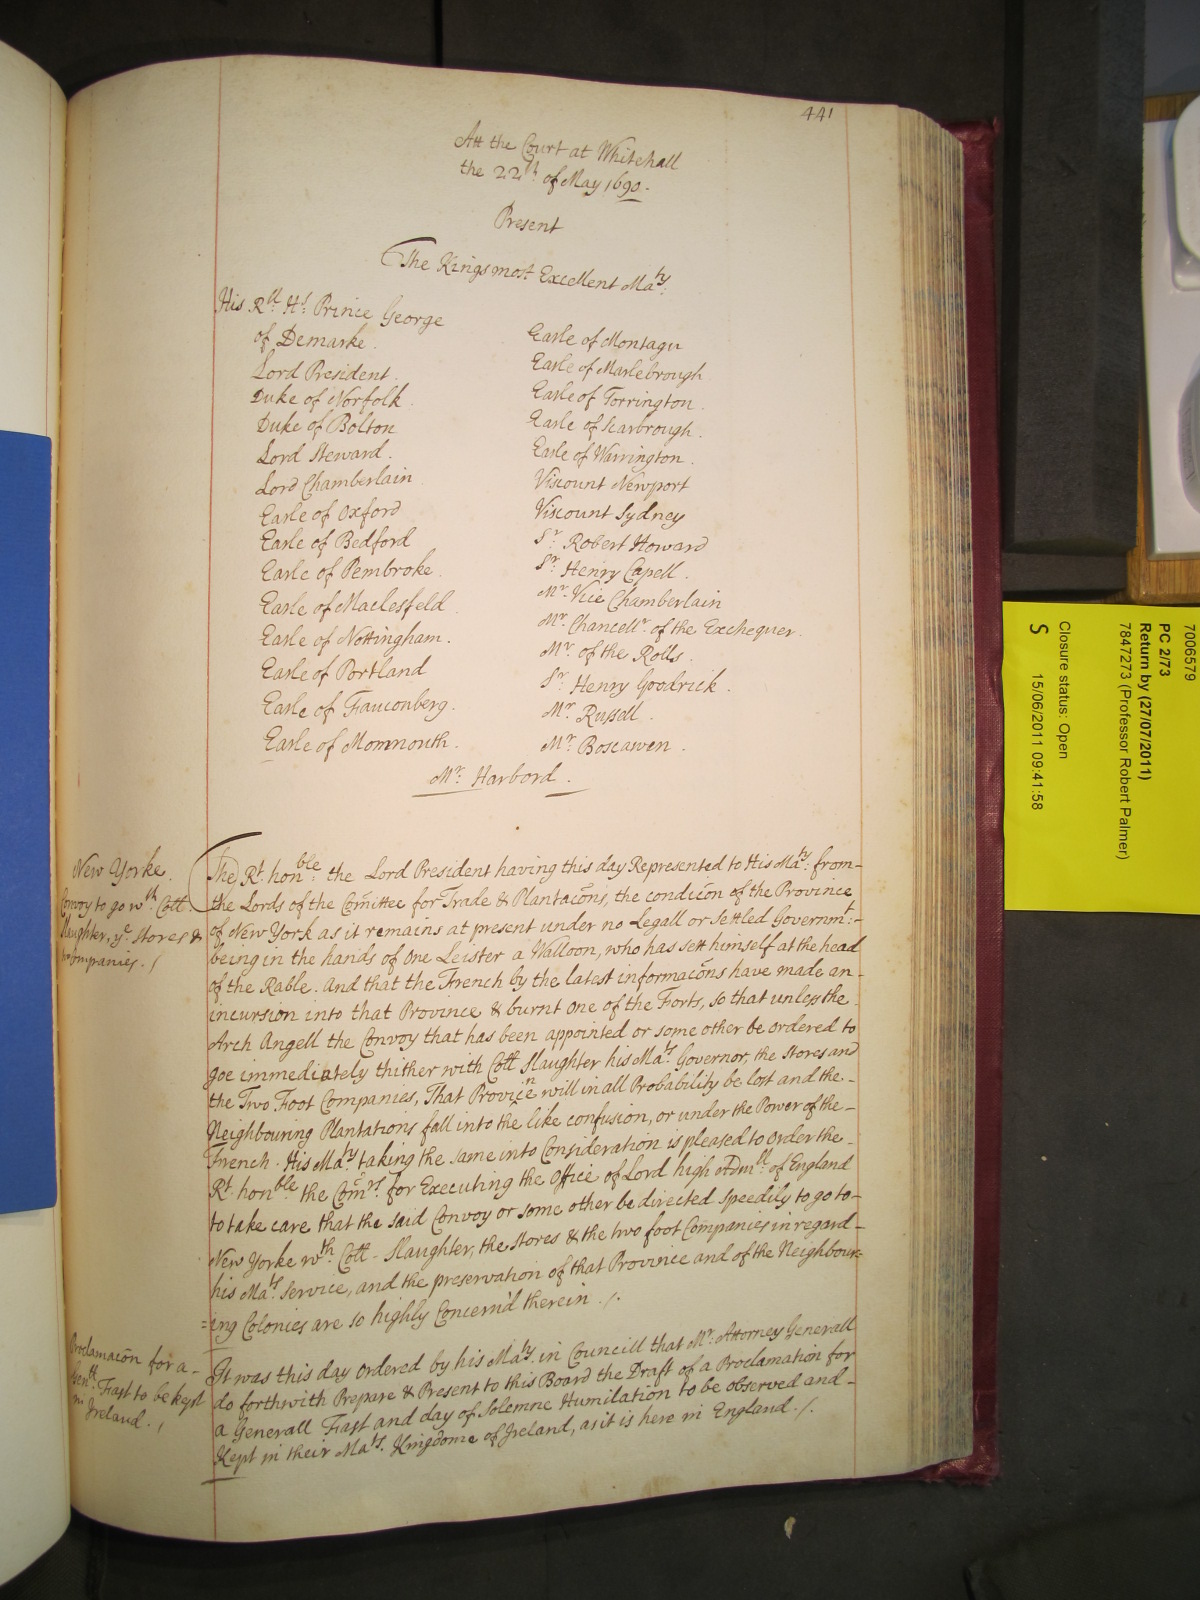 441
Att the Court at Whitehall
the 22th of May 1690.
Present
The Kings most Excellent Maty.
His Rll. Hs. Prince George
of Demarke.
Lord President.
Duke of Norfolk.
Duke of Bolton
Lord Steward.
Lord Chamberlain
Earle of Oxford
Earle of Bedford
Earle of Pembroke.
Earle of Maclesfeld.
Earle of Nottingham.
Earle of Portland
Earle of Fauconberg.
Earle of Momnouth.
Earle of Montagu
Earle of Marlebrough
Earle of Torrington.
Earle of Scarbrough.
Earle of Warrington.
Viscount Newport
Viscount Sydney
Sr. Robert Howard
Sr. Henry Capell.
Mr. Vice Chamberlain
Mr. Chancellr. of the Exchequer.
Mr. of the Rolls.
Sr. Henry Goodrick.
Mr. Russell.
Mr. Boscawen.
Mr. Harbord.
New Yorke.
Convoy to go wth. Coll.
Slaughter, ye. Stores &
Companies. /
The Rt. honble. the Lord President having this day Represented to His Maty. from-
the Lords of the Cōmittee for Trade & Plantacōns, the condicōn of the Province
of New York as it remains at present under no Legall or settled Governmt:-
being in the hands of one Leister a Walloon, who has sett himself at the head
of the Rable. And that the French by the latest informacōns have made an-
incursion into that Province & burnt one of the Forts, so that unless the.
Arch Angell the Convoy that has been appointed or some other be ordered to
goe immediately thither with Coll Slaughter his Mats. Governor, the Stores and
the Two Foot Companies, That Provicen will in all Probability be lost and the-
Neighbouring Plantations fall into the like confusion, or under the Power of the-
French. His Maty. taking the same into Consideration is pleased to order the-
Rt. honble. the Com̄rs. for Executing the Office of Lord high Admll. of England
to take care that the said Convoy or some other be directed speedily to go to-
New Yorke wth. Coll- Slaughter, the Stores & the two foot Companies in regard-
his Mats. Service, and the preservation of that Province and of the Neighbour-
=ing Colonies are so highly Concern'd therein./.
Proclamacōn for a-
Genll. Fast to be kept
in Ireland. /
It was this day ordered by his Maty. in Councill that Mr. Attorney Generall
do forthwith Prepare & Present to this Board the Draft of a Proclamation for
a Generall Fast and day of Solemne Humiliation to be observed and-
Kept in their Mats. Kingdome of Ireland, as it is here in England./.
7006579
PC 2/73
Return by (27/07/2011)
7847273 (Professor Robert Palmer)
Closure status: Open
S 15/06/2011 09:41:58